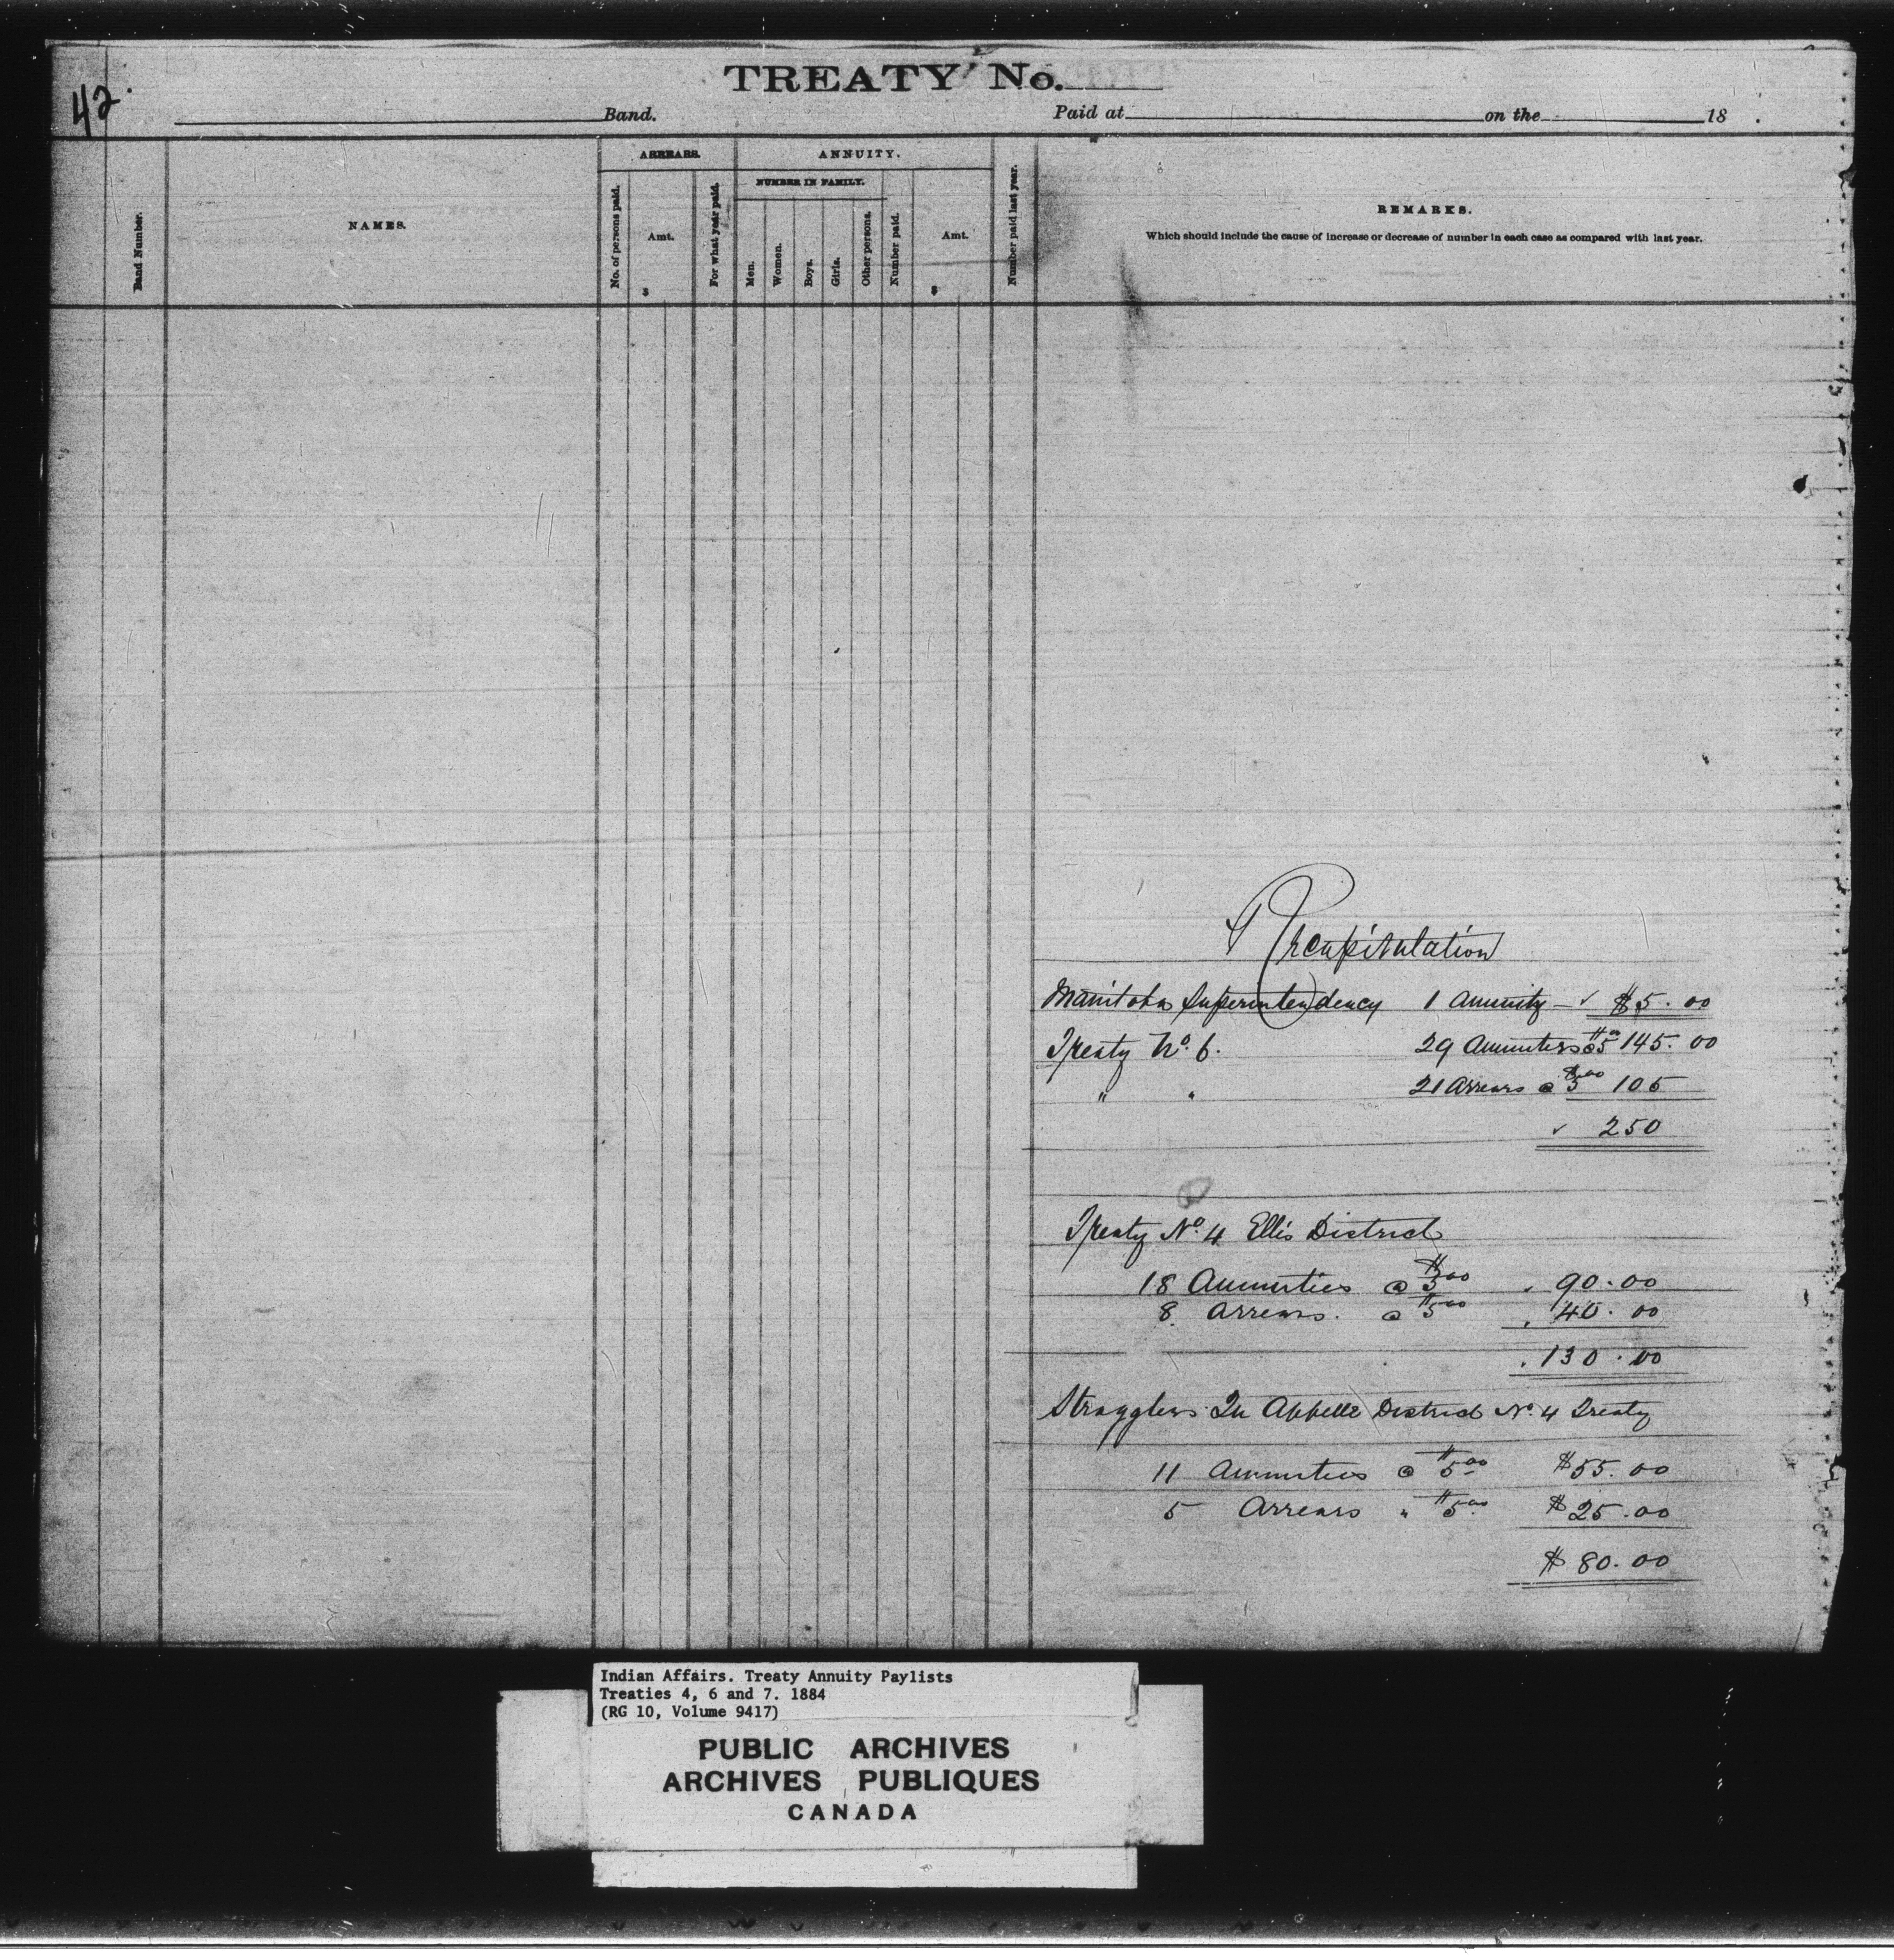 42.
TREATY No.
Band. Paid at on the 18 .
Band Number.
NAMES.
ARREARS.
No. of persons paid.
Amt.
$
For what year paid.
ANNUITY.
NUMBER IN FAMILY.
Men.
Women.
Boys.
Girls.
Other persons.
Number paid.
Amt.
$
Number paid last year.
REMARKS.
Which should include the cause of increase or decrease of number in each case as compared with last year.
Recapitulation
Manitoba Superintendency 1 Annuity – ✓ $5.00
Treaty No. 6. 29 Annuities @ $5.00 145.00
" " 21 Arrears @ $5.00 105
✓ 250
Treaty No. 4 Ellis District
18 Annuities @ $5.00 90.00
8. Arrears. @ $5.00 40.00
130.00
Stragglers Qu Appelle District No. 4 Treaty
11 Annuities @ $5.00 $55.00
5 Arrears " $5.00 $25.00
$80.00
Indian Affairs. Treaty Annuity Paylists
Treaties 4, 6 and 7. 1884
(RG 10, Volume 9417)
PUBLIC ARCHIVES
ARCHIVES PUBLIQUES
CANADA